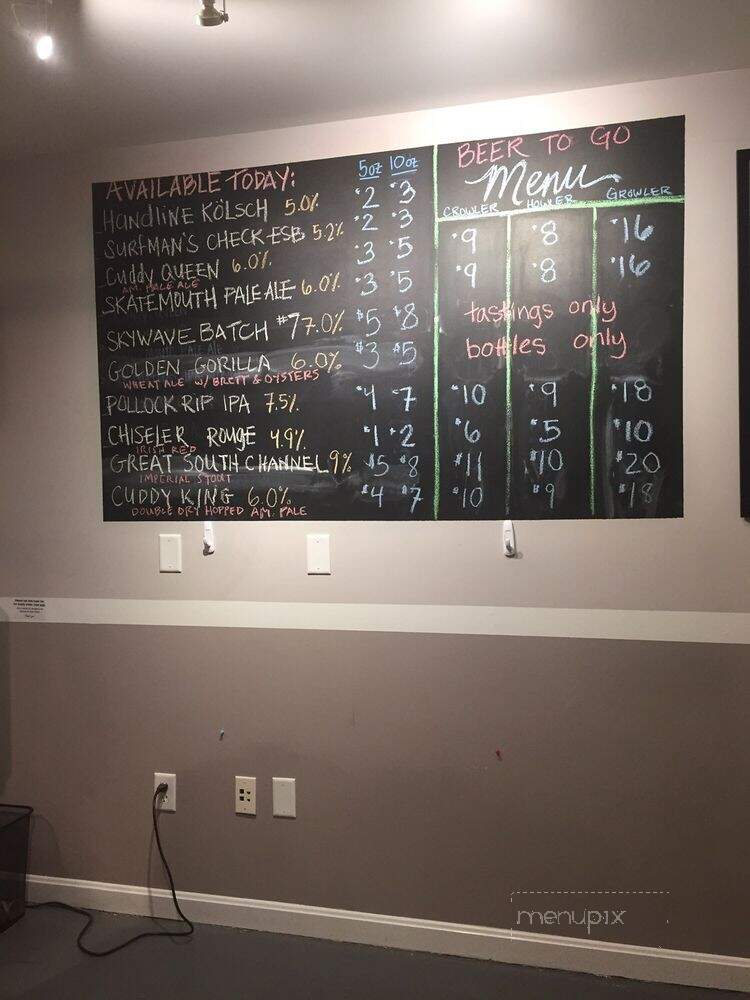 AVAILABLE TODAY: 5oz 10oz
HANDLINE KÖLSCH 5.0% $2 $3
SURFMAN'S CHECK ESB 5.2% $2 $3
CUDDY QUEEN 6.0% $3 $5
AM. PALE ALE
SKATEMOUTH PALE ALE 6.0% $3 $5
SKYWAVE BATCH #7 7.0% $5 $8
GOLDEN GORILLA 6.0% $3 $5
WHEAT ALE W/ BRETT & OYSTERS
POLLOCK RIP IPA 7.5% $4 $7
CHISELER ROUGE 4.9% $1 $2
IRISH RED
GREAT SOUTH CHANNEL 9% $5 $8
IMPERIAL STOUT
CUDDY KING 6.0% $4 $7
DOUBLE DRY HOPPED AM. PALE
BEER TO GO
Menu
CROWLER HOWLER GROWLER
$9 $8 $16
$9 $8 $16
tastings only
bottles only
$10 $9 $18
$6 $5 $10
$11 $10 $20
$10 $9 $18
menupix